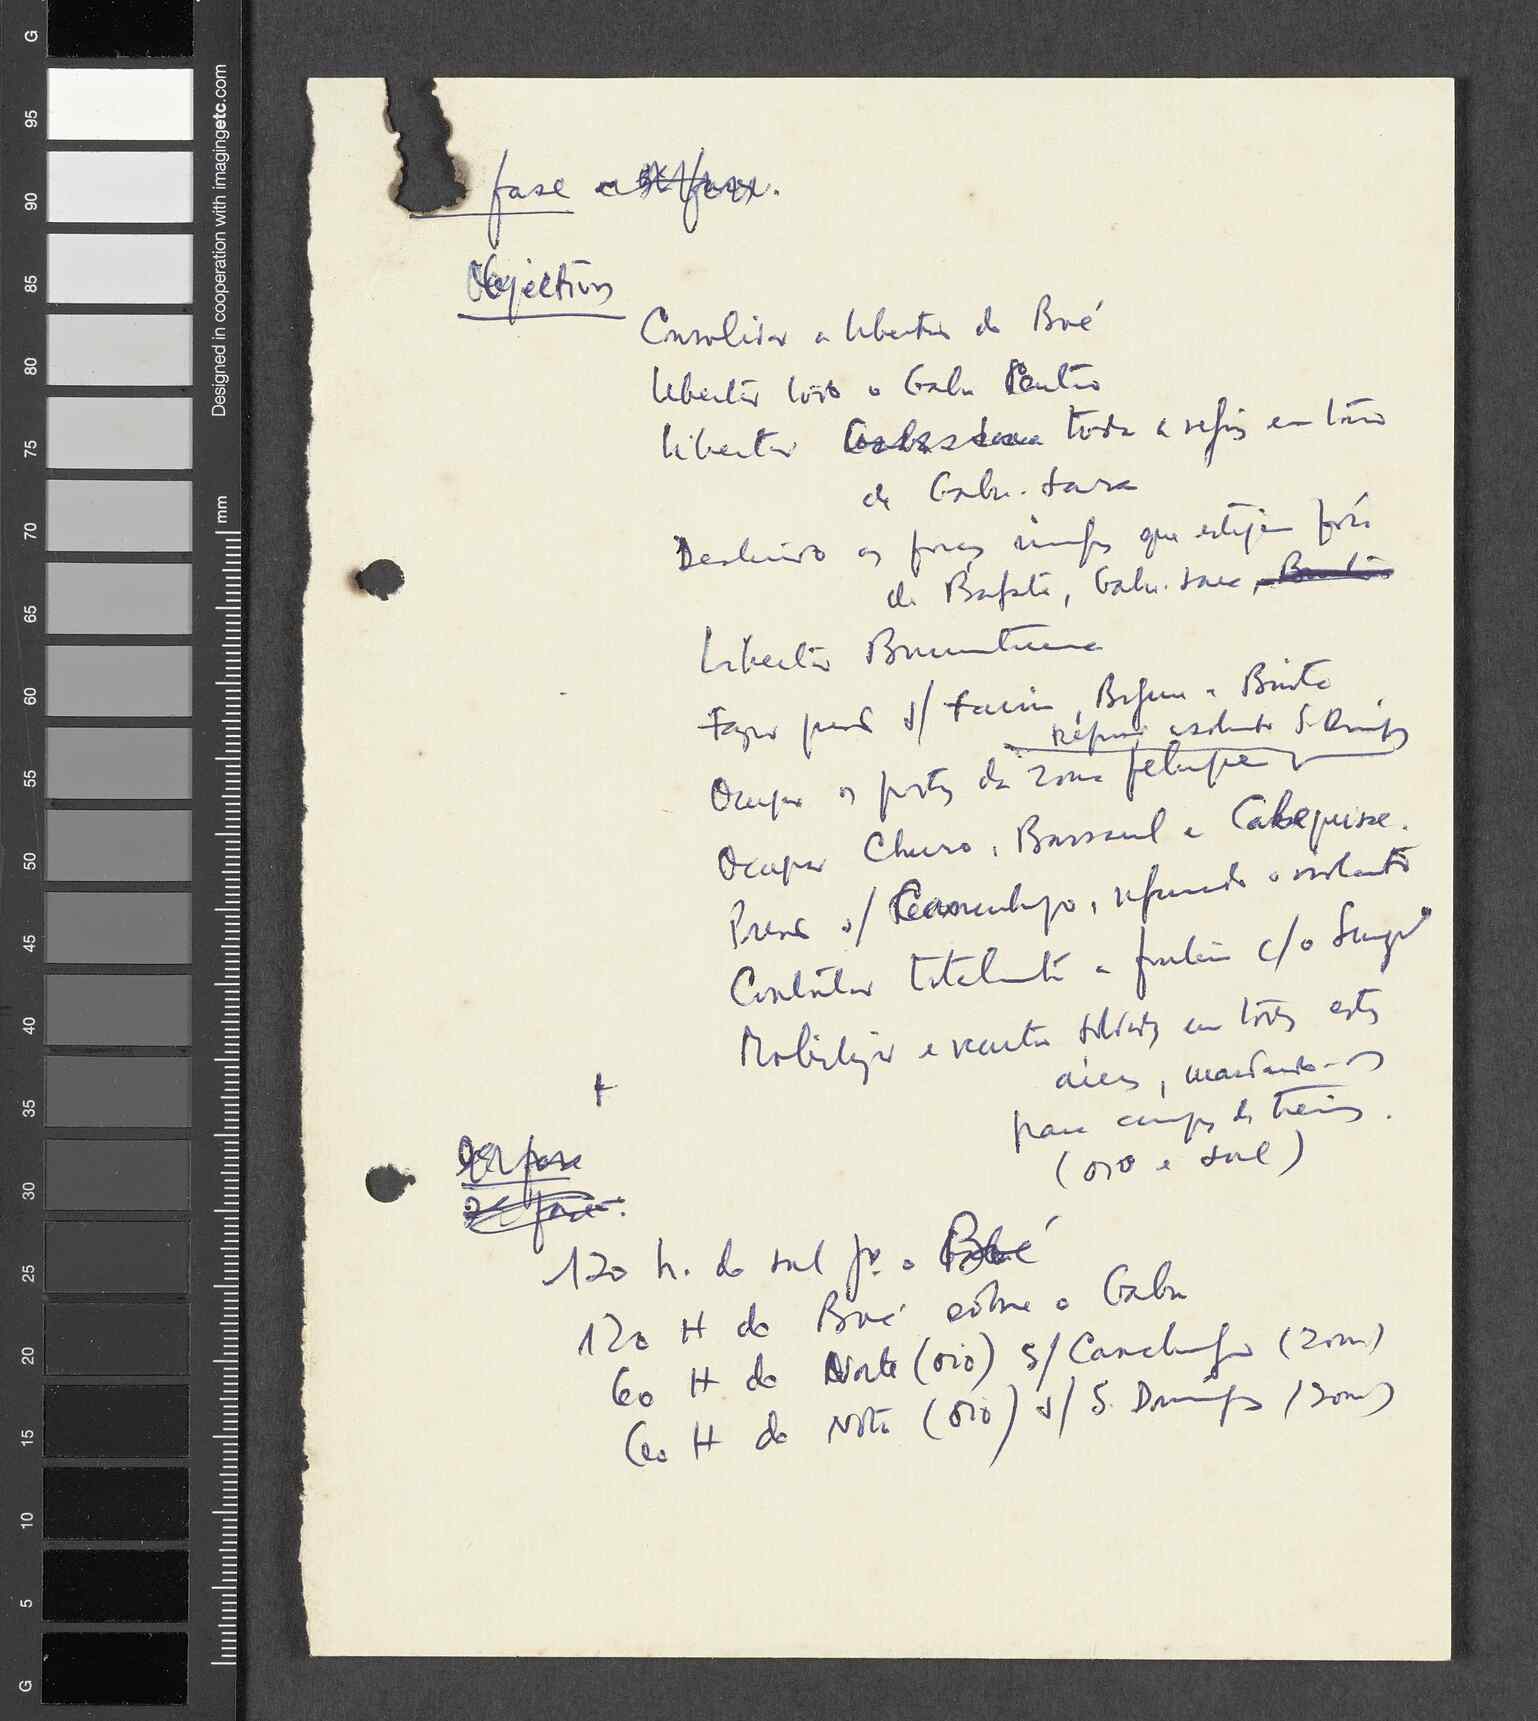 G
95
90
85
80
75
70
65
60
55
50
45
40
35
30
25
20
15
10
5
G
Designed in cooperation with imagingetc.com
mm
fase
Objectivos
Consolidar a libertação do Boé
Libertar todo o Gabu
Libertar toda a região em tôrno
de Gabu-Sara
Destruindo as forças inimigas que estejam fora
de Bafatá, Gabu-Sara,
Libertar Buruntuma
Fazer pressão s/ Farim, Bigene e Binta
S. Domingos
Ocupar os postos da zona felupe
Ocupar Churo, Bassarel e
Pressão s/ Canchungo, reforçando o isolamento
Controlar totalmente a fronteira c/o Senegal
Mobilizar e recrutar soldados em todas estas
áreas, mandando-os
para campos de treino.
(Oio e Sul)
+
1ª fase
2ª fase:
120 h. do Sul pª o Boé
120 H do Boé sôbre o Gabu
60 H do Norte (Oio) s/ Canchungo (zona)
60 H do Norte (Oio) s/ S. Domingos (zona)